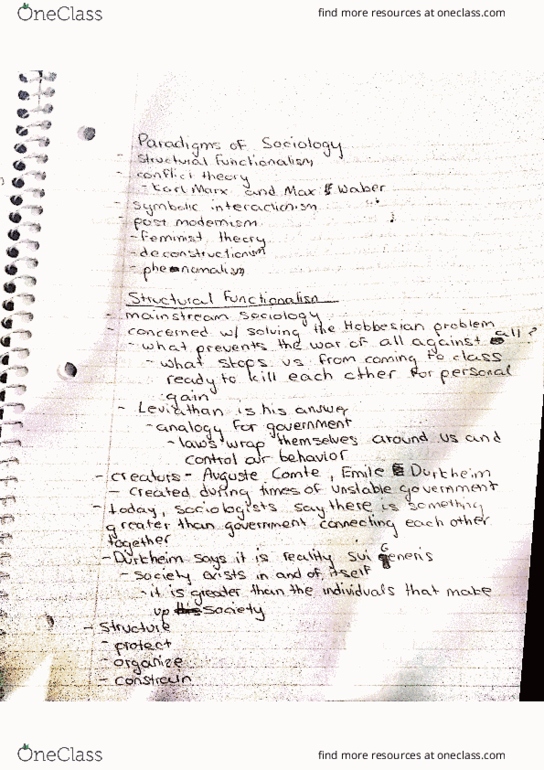 OneClass
find more resources at oneclass.com
Paradigms of Sociology
- Structural Functionalism
- conflict theory
- Karl Marx and Max Waber
- symbolic interactionism
- post modernism
- feminist theory
- deconstructionism
- phenomalism
Structural Functionalism
- mainstream sociology
- concerned w/ solving the Hobbesian problem
- what prevents the war of all against all?
- what stops us from coming to class
ready to kill each other for personal
gain
- Leviathan is his answer
- analogy for government
- laws wrap themselves around us and
control our behavior
- creators - Auguste Comte, Emile Durkheim
- created during times of unstable government
- today, sociologists say there is something
greater than government connecting each other
together
- Durkheim says it is reality Sui Generis
- society exists in and of itself
- it is greater than the individuals that make
up society
- Structure
- protect
- organize
- constrain
OneClass
find more resources at oneclass.com